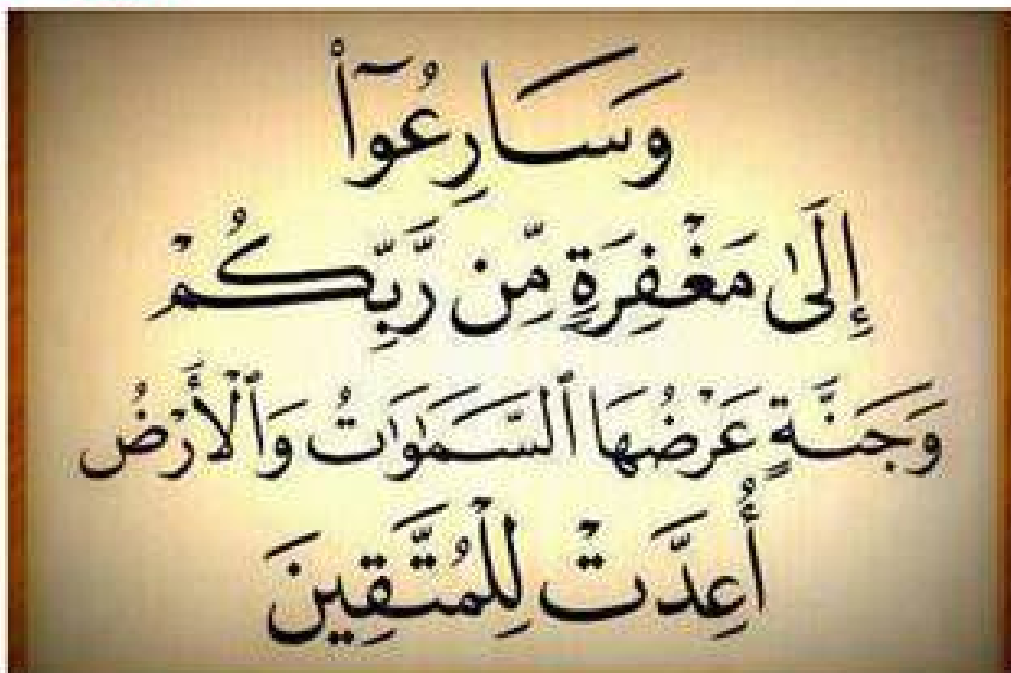 وَسَارِعُوٓا۟
إِلَىٰ مَغْفِرَةٍ مِّن رَّبِّكُمْ
وَجَنَّةٍ عَرْضُهَا ٱلسَّمَٰوَٰتُ وَٱلْأَرْضُ
أُعِدَّتْ لِلْمُتَّقِينَ